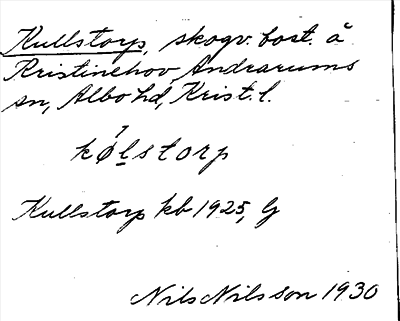 Kullstorp, skogv. bost. å
Kristinehov, Andrarums
sn, Albo hd, Krist. l.
kø̀l̲storp
Kullstorp kb 1925, G
Nils Nilsson 1930